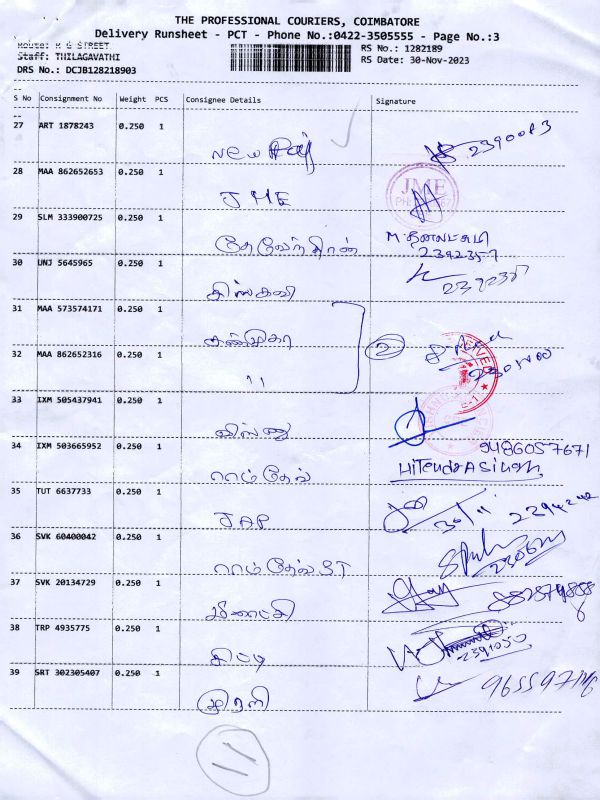 THE PROFESSIONAL COURIERS, COIMBATORE
Delivery Runsheet - PCT - Phone No.:0422-3505555 - Page No.:3
Route: M G STREET
RS No.: 1282189
Staff: THILAGAVATHI
RS Date: 30-Nov-2023
DRS No.: DCJB128218903
S No Consignment No Weight PCS Consignee Details Signature
27 ART 1878243 0.250 1
New
28 MAA 862652653 0.250 1
JME
JME
29 SLM 333900725 0.250 1
தேவேந்திரன்
2392357
30 UNJ 5645965 0.250 1
31 MAA 573574171 0.250 1
சண்முகா
2
32 MAA 862652316 0.250 1
11
33 IXM 505437941 0.250 1
விஷ்ணு
34 IXM 503665952 0.250 1
9486057671
ராம்தேவ் Hitendra Singh
35 TUT 6637733 0.250 1
JAP 30/11
36 SVK 60400042 0.250 1
ராம்தேவ் ST
37 SVK 20134729 0.250 1
மீனாட்சி
38 TRP 4935775 0.250 1
2391050
39 SRT 302305407 0.250 1
முரளி
11